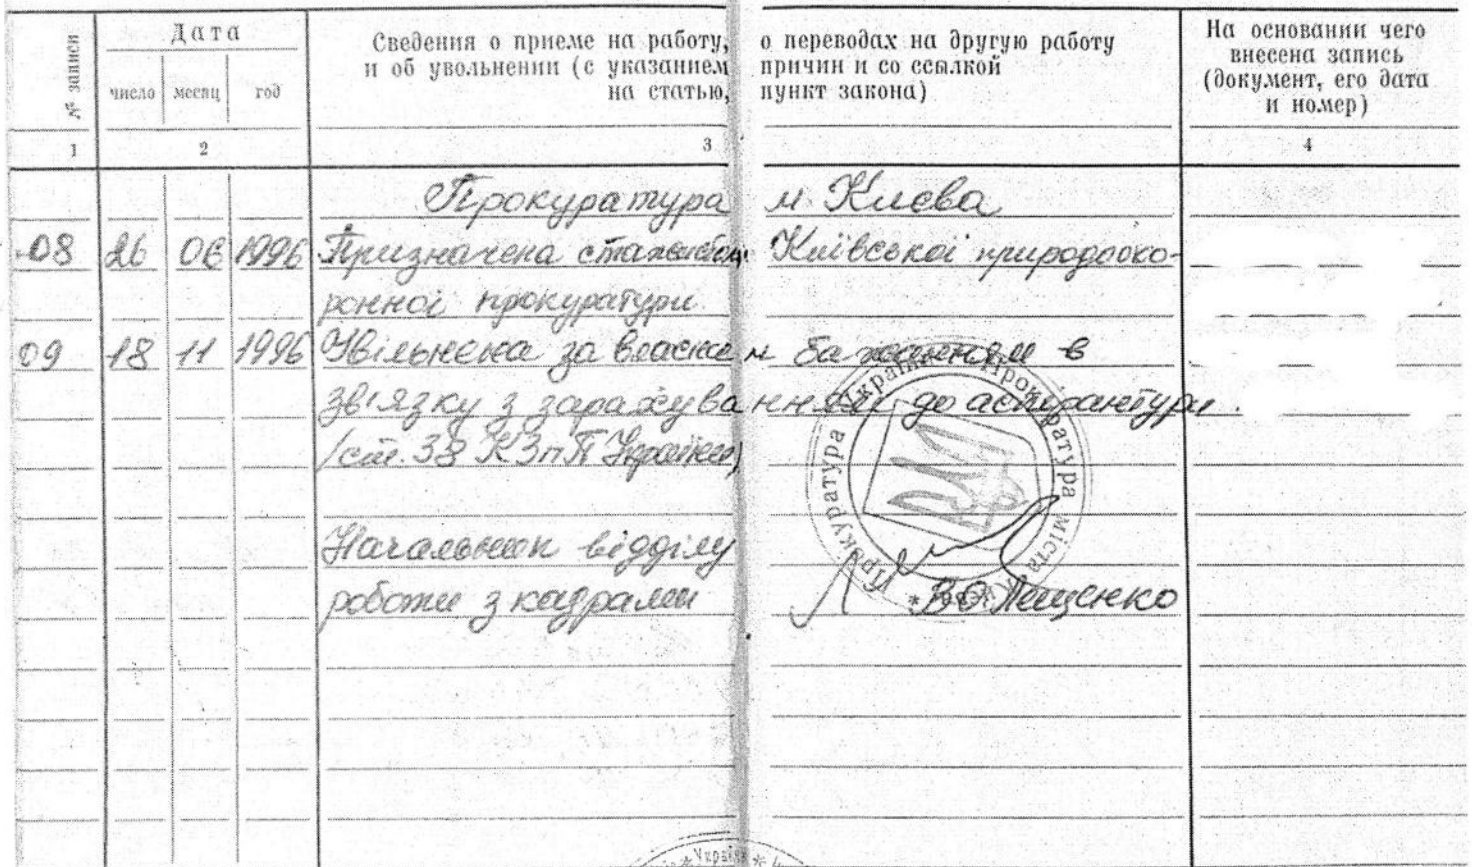 № записи
Дата
число месяц год
Сведения о приеме на работу, о переводах на другую работу
и об увольнении (с указанием причин и со ссылкой
на статью, пункт закона)
На основании чего
внесена запись
(документ, его дата
и номер)
1 2 3 4
Прокуратура м. Києва
08 26 06 1996 Призначена стажистом Київської природоохо-
ронної прокуратури
09 18 11 1996 Звільнена за власним бажанням в
зв'язку з зарахуванням до аспірантури.
/ст. 38 КЗпП України/
Начальник відділу
роботи з кадрами В.О. Лещенко
Україна * Прокуратура міста Києва * Прокуратура
Україна